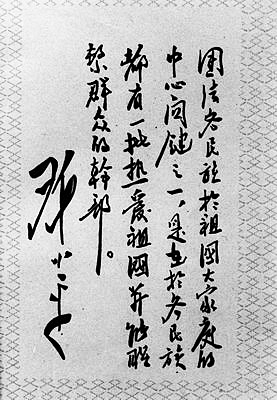 团结各民族於祖國大家庭的
中心関键之一，是在於各民族
都有一批热爱祖國并能联
繫群众的幹部。
邓小平